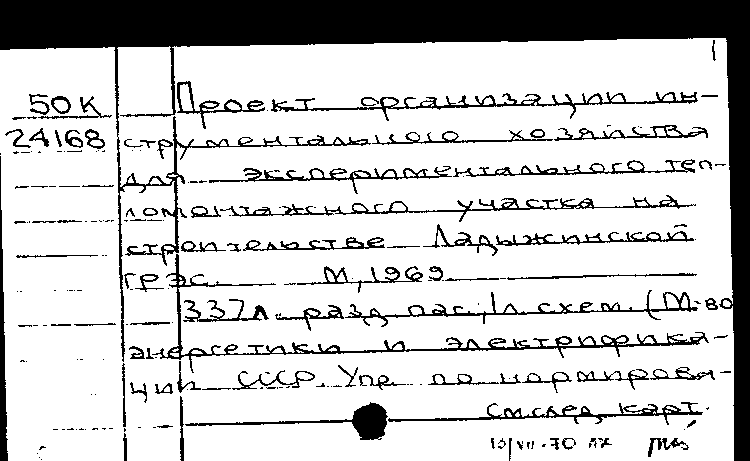 50К Проект организации ин-
24168 струментального хозяйства
для экспериментального теп-
ломонтажного участка на
строительстве Ладыжинской
ГРЭС. М, 1969.
337л. разд. паг., 1л. схем. (М-во
энергетики и электрифика-
ции СССР. Упр. по нормирова-
См. след. карт.
10/VII-70